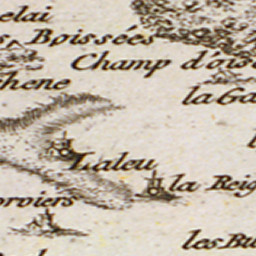 elai
Boissées
Champ d'oise
chene
la Ga
Laleu
la Reig
orviers
les Bu